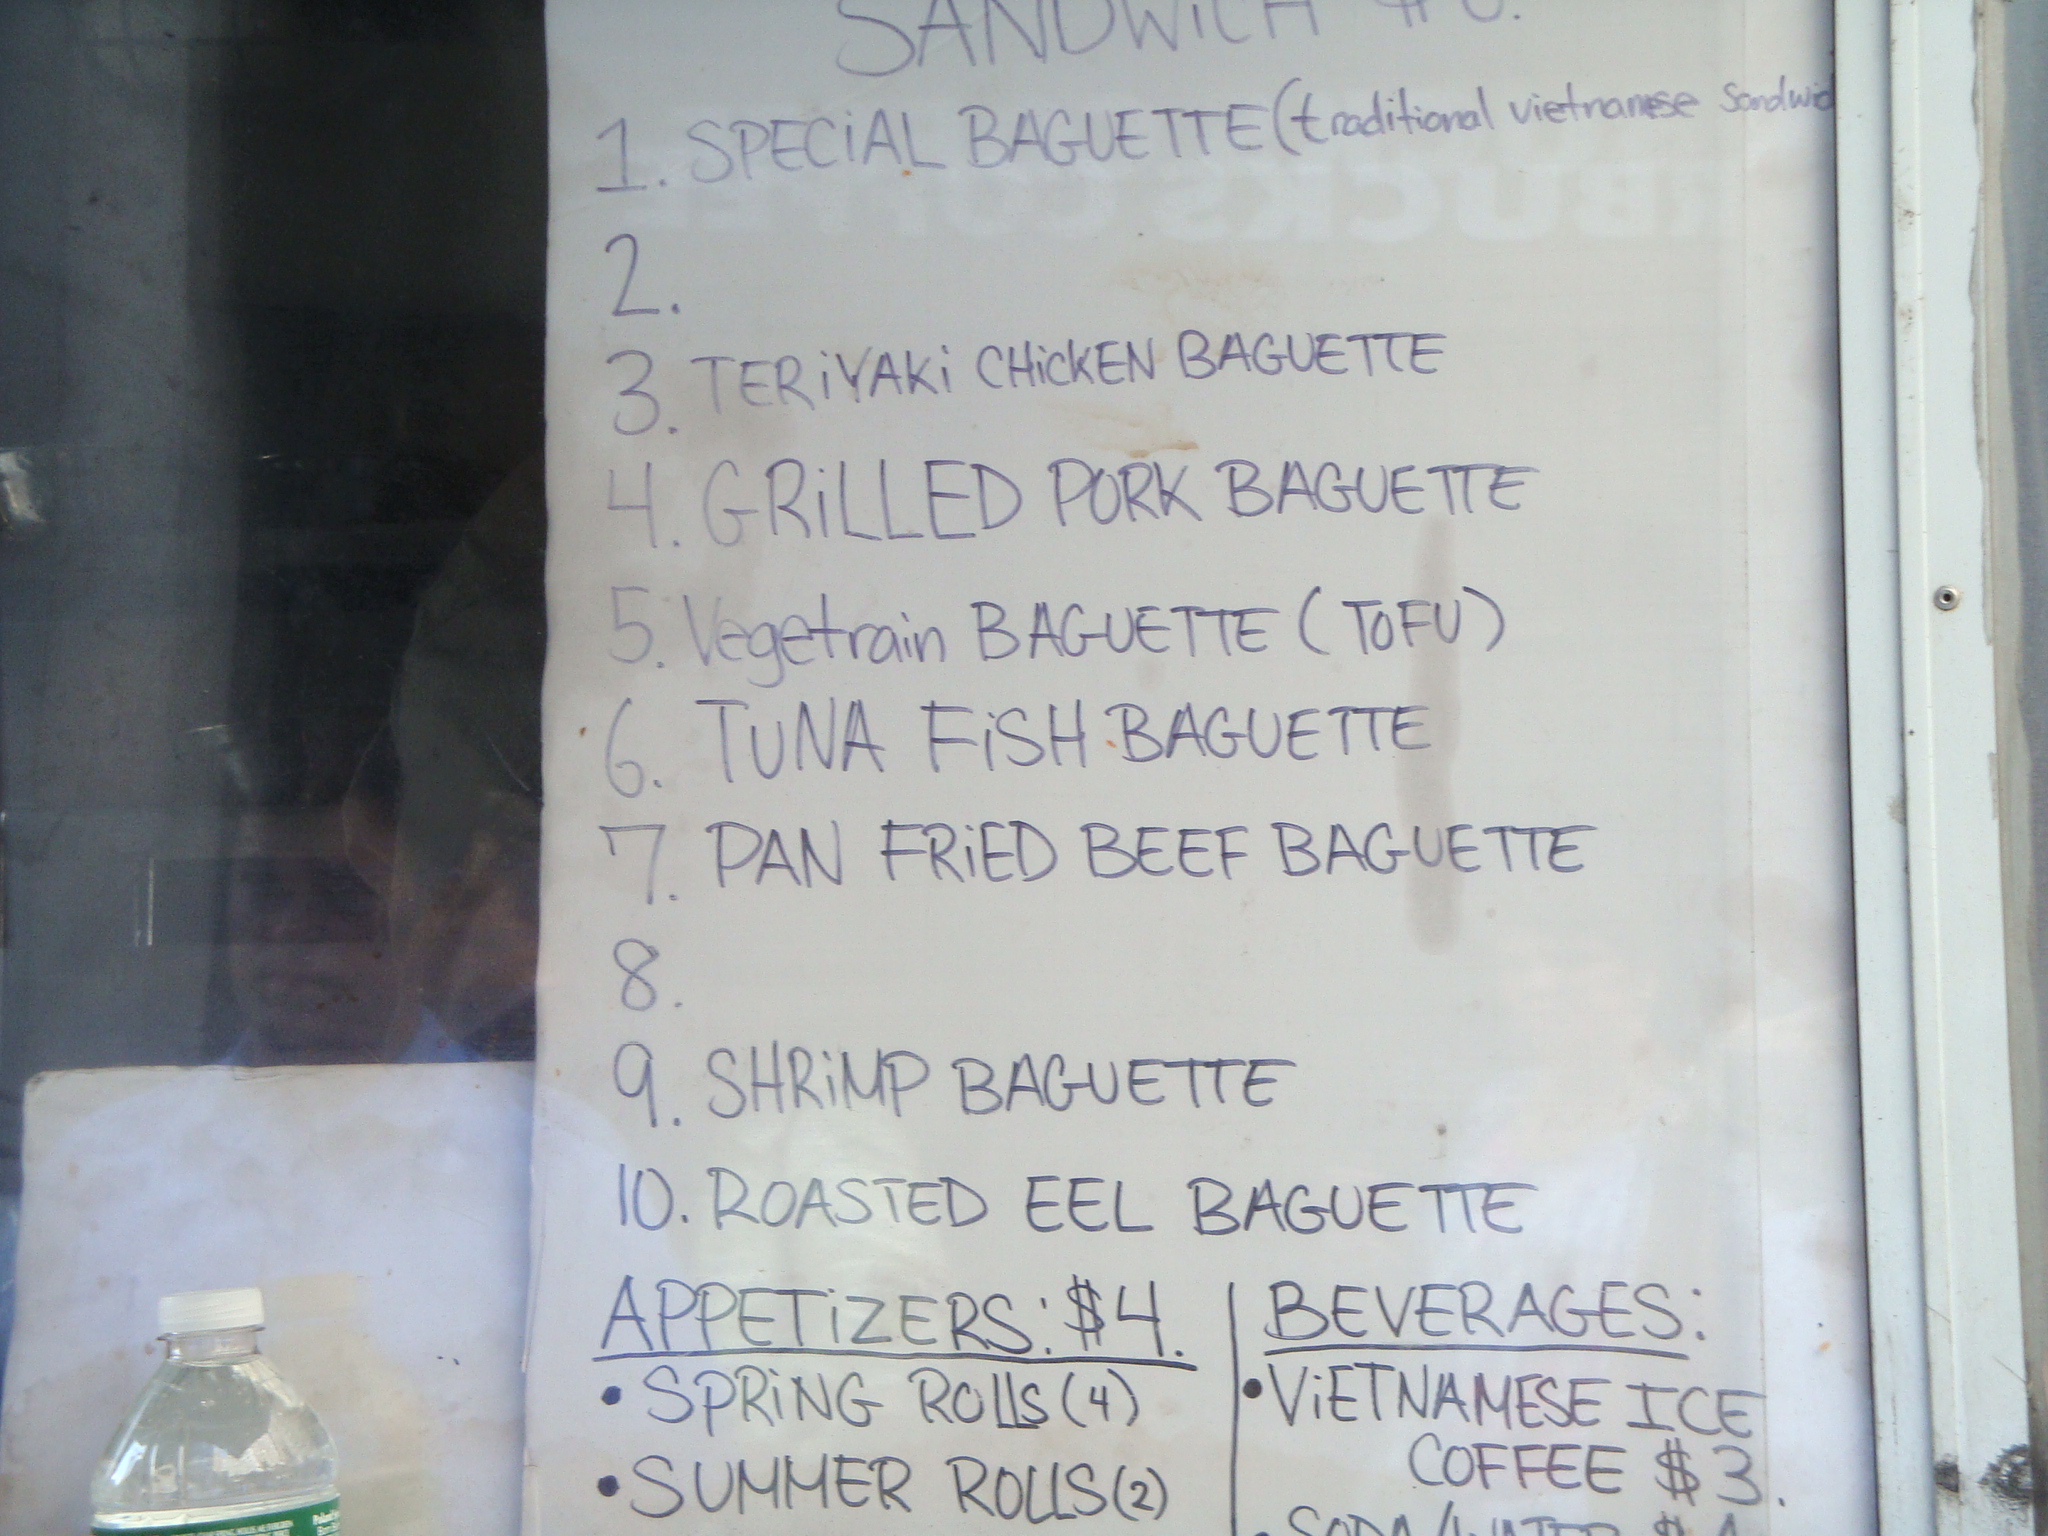 SANDWiCH
1. SPECiAL BAGUETTE (traditional vietnamese Sandwic
2.
3. TERiYAKi CHiCKEN BAGUETTE
4. GRiLLED PORK BAGUETTE
5. Vegetrain BAGUETTE (TOFU)
6. TUNA FiSH BAGUETTE
7. PAN FRiED BEEF BAGUETTE
8.
9. SHRiMP BAGUETTE
10. ROASTED EEL BAGUETTE
APPETiZERS: $4.
• SPRiNG ROLLS (4)
• SUMMER ROLLS (2)
BEVERAGES:
• ViETNAMESE ICE
COFFEE $3.
• SODA/WATER $1